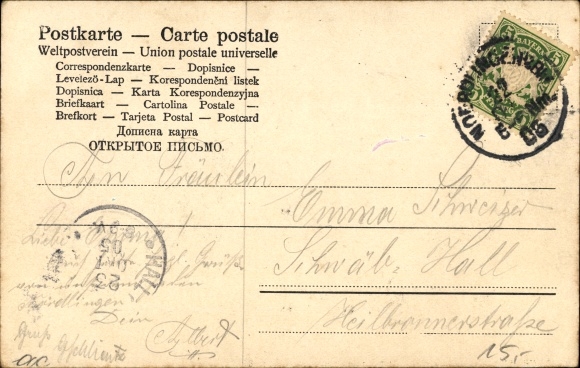 Postkarte — Carte postale
Weltpostverein — Union postale universelle
Correspondenzkarte — Dopisnice —
Levelező-Lap — Korespondenční listek
Dopisnica — Karta Korespondenzyjna
Briefkaart — Cartolina Postale —
Brefkort — Tarjeta Postal — Postcard
Дописна карта
ОТКРЫТОЕ ПИСЬМО.
5 BAYERN 5
NOERDLINGEN
An Fräulein
Emma Schweizer
Schwäb. Hall
Heilbronnerstraße
HALL
Liebe
Grüße
Nördlingen
Dein
Albert
Gruß
15,-